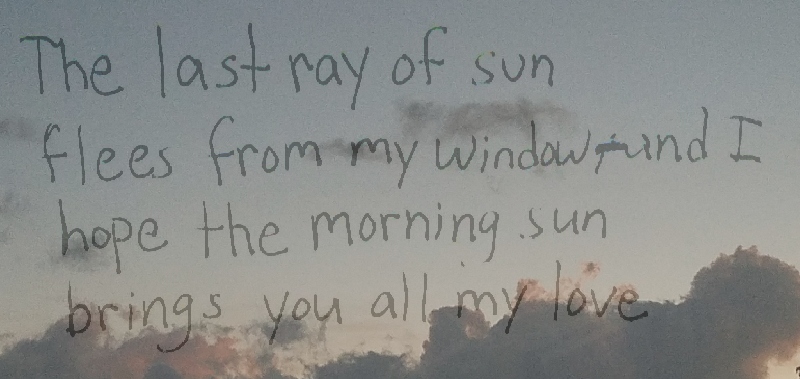 The last ray of sun
flees from my window, and I
hope the morning sun
brings you all my love